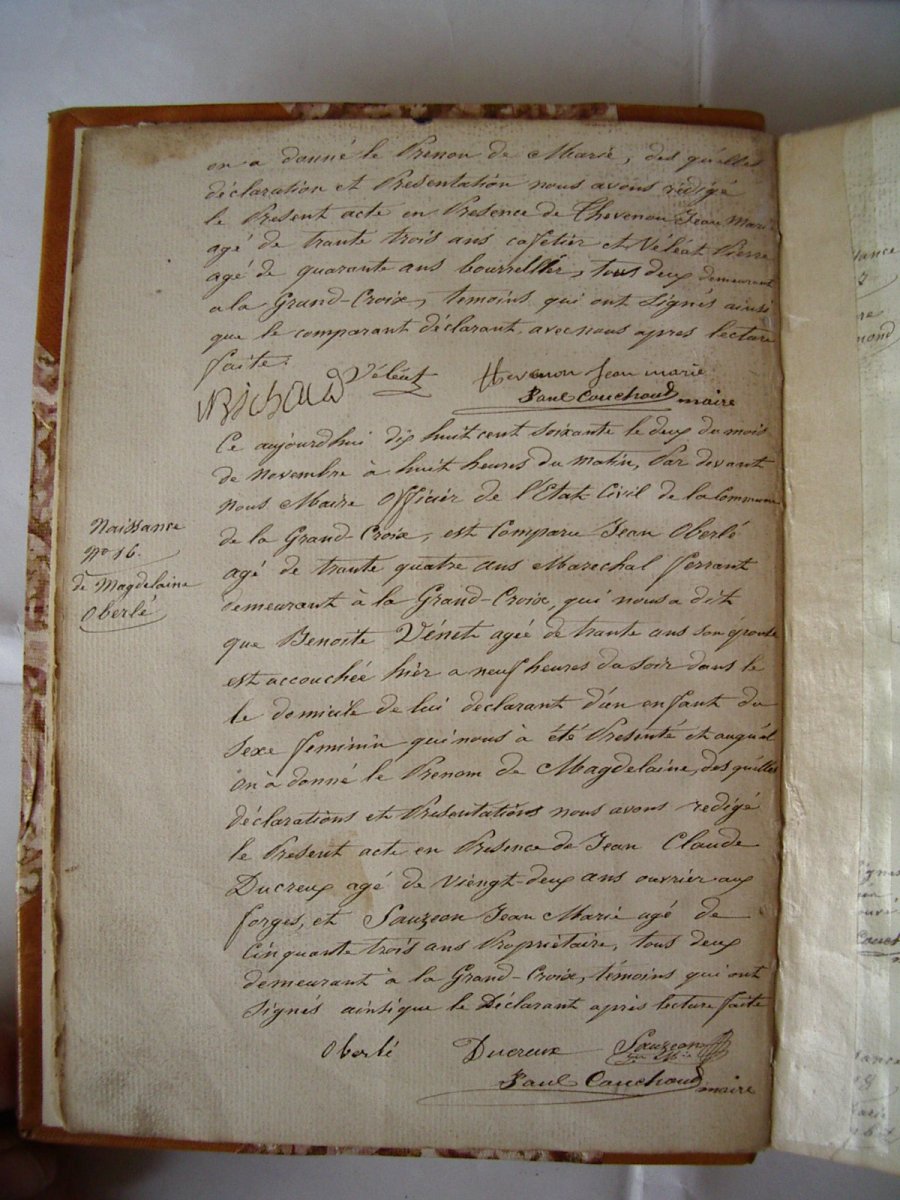 on a donné le Prenon de Marie, des quélles
déclaration et Présentation nous avons rédigé
le Présent acte en Présence de Thevenon Jean Marie
agé de trante trois ans cafetier et Véléat Pierre
agé de quarante ans bourrellier, tous deux demeurant
a la Grand-Croix, temoins qui ont signés ainsi
que le comparant déclarant avec nous apres lecture
faite.
Véléat Thevenon Jean marie
Paul Couchoud maire
Ce aujourdhui dix huit cent soixante le deux du mois
de novembre à huit heures du matin, Par devant
nous Maire Officier de l'Etat Civil de la Commune
de la Grand Croix, est Comparu Jean Oberlé
agé de trante quatre ans Marechal ferrant
demeurant à la Grand-Croix, qui nous a dit
que Benoite Vénet agée de trante ans son epouse
est accouchée hier a neuf heures du soir dans le
le domicile de lui declarant d'un enfant du
Sexe feminin qui nous à été Présenté et auquél
on à donné le Prenom de Magdelaine, des quélles
déclarations et Présentations nous avons redigé
le Présent acte en Présence de Jean Claude
Ducreux agé de viengt-deux ans ouvrier aux
forges, et Sauzéon Jean Marie agé de
Cinquante trois ans Propriétaire, tous deux
demeurant à la Grand-Croix, témoins qui ont
signés ainsi que le Déclarant après lecture faite
Oberlé Ducreux Sauzéon
Paul Couchoud maire
Naissance
No 16.
de Magdelaine
Oberlé